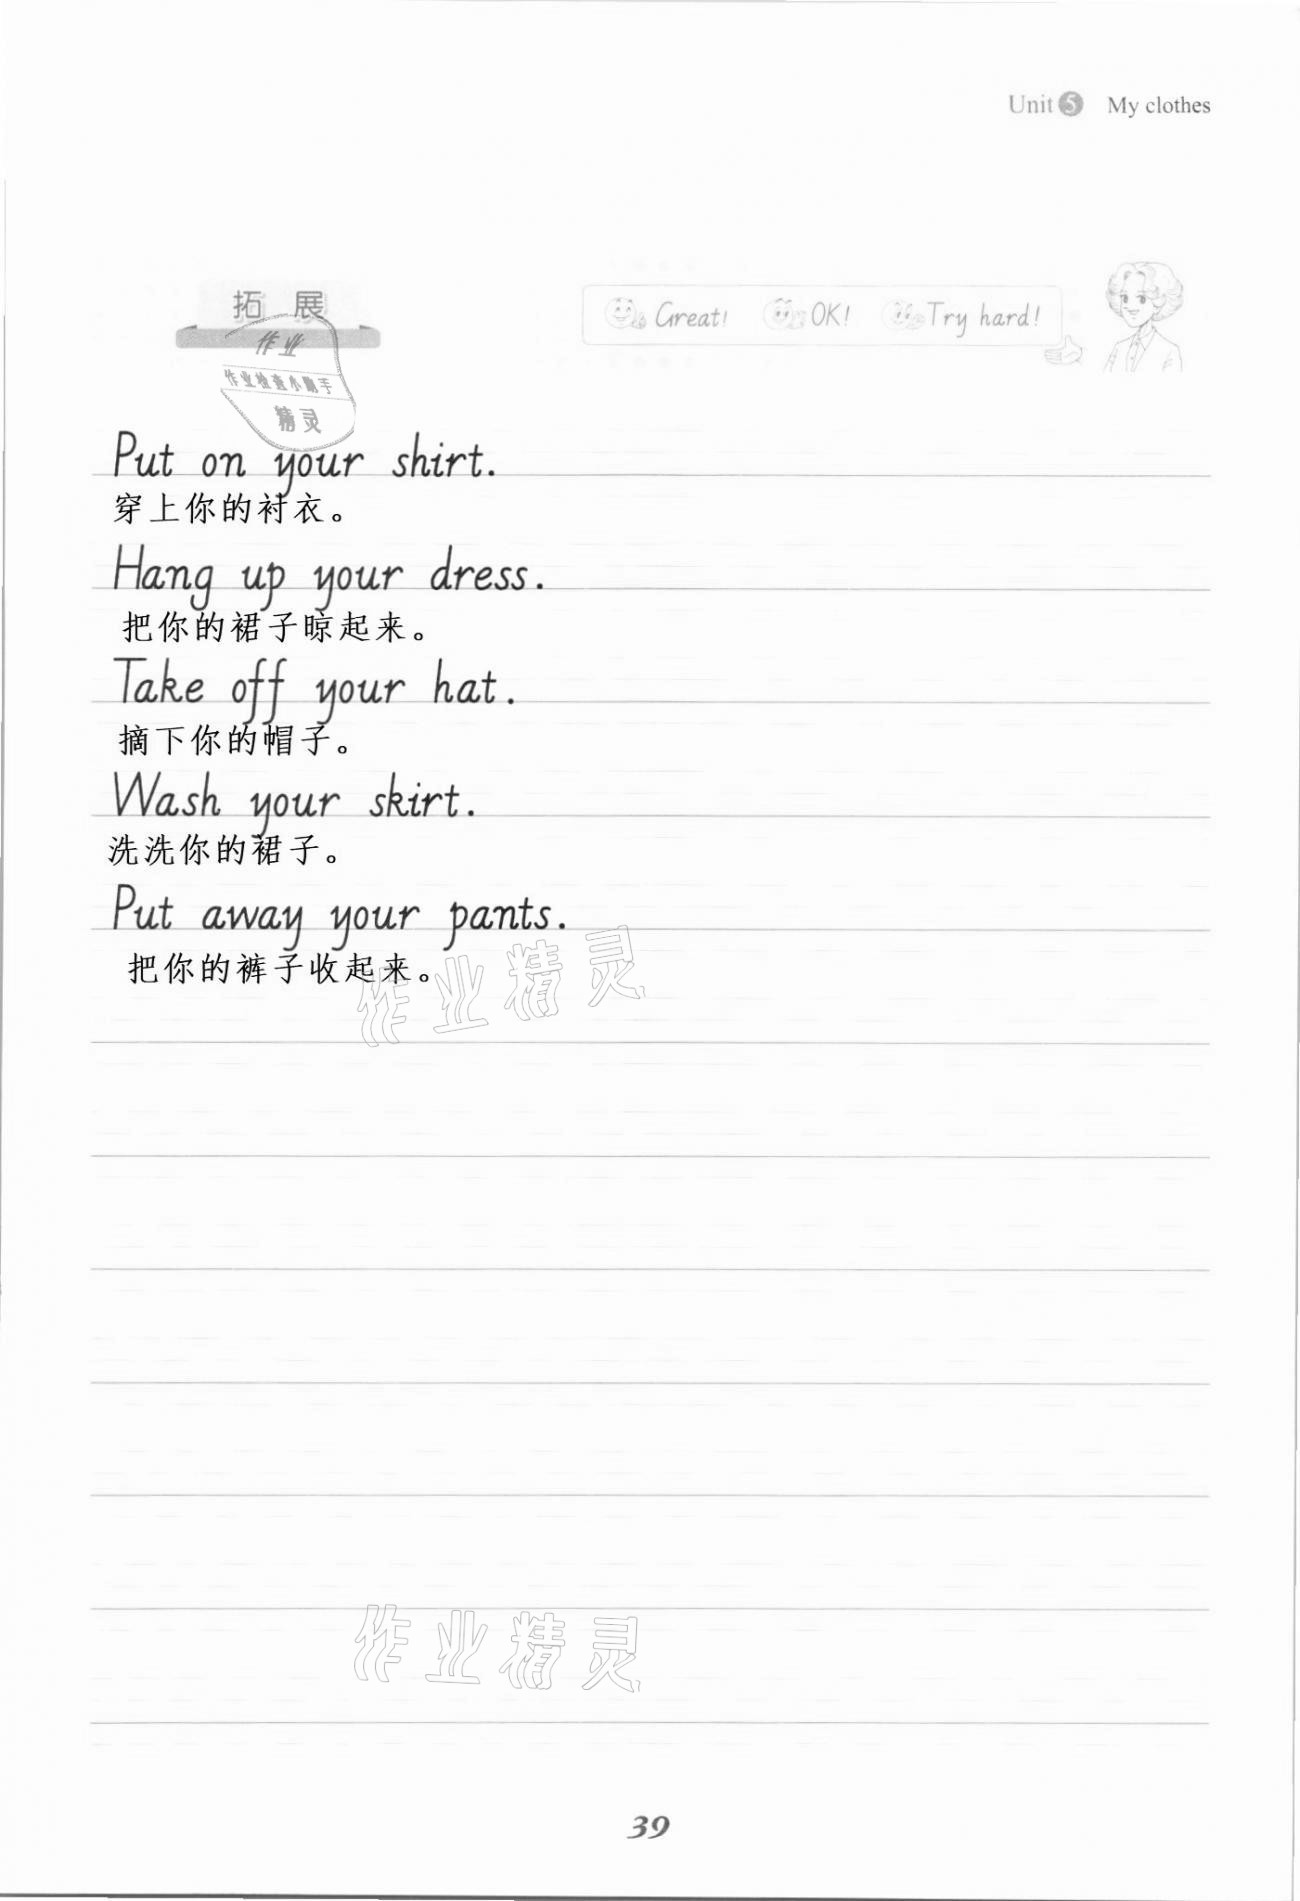 Unit 5 My clothes
拓展
Great! OK! Try hard!
作业
作业检查小助手
精灵
Put on your shirt.
穿上你的衬衣。
Hang up your dress.
把你的裙子晾起来。
Take off your hat.
摘下你的帽子。
Wash your skirt.
洗洗你的裙子。
Put away your pants.
把你的裤子收起来。
作业精灵
作业精灵
39